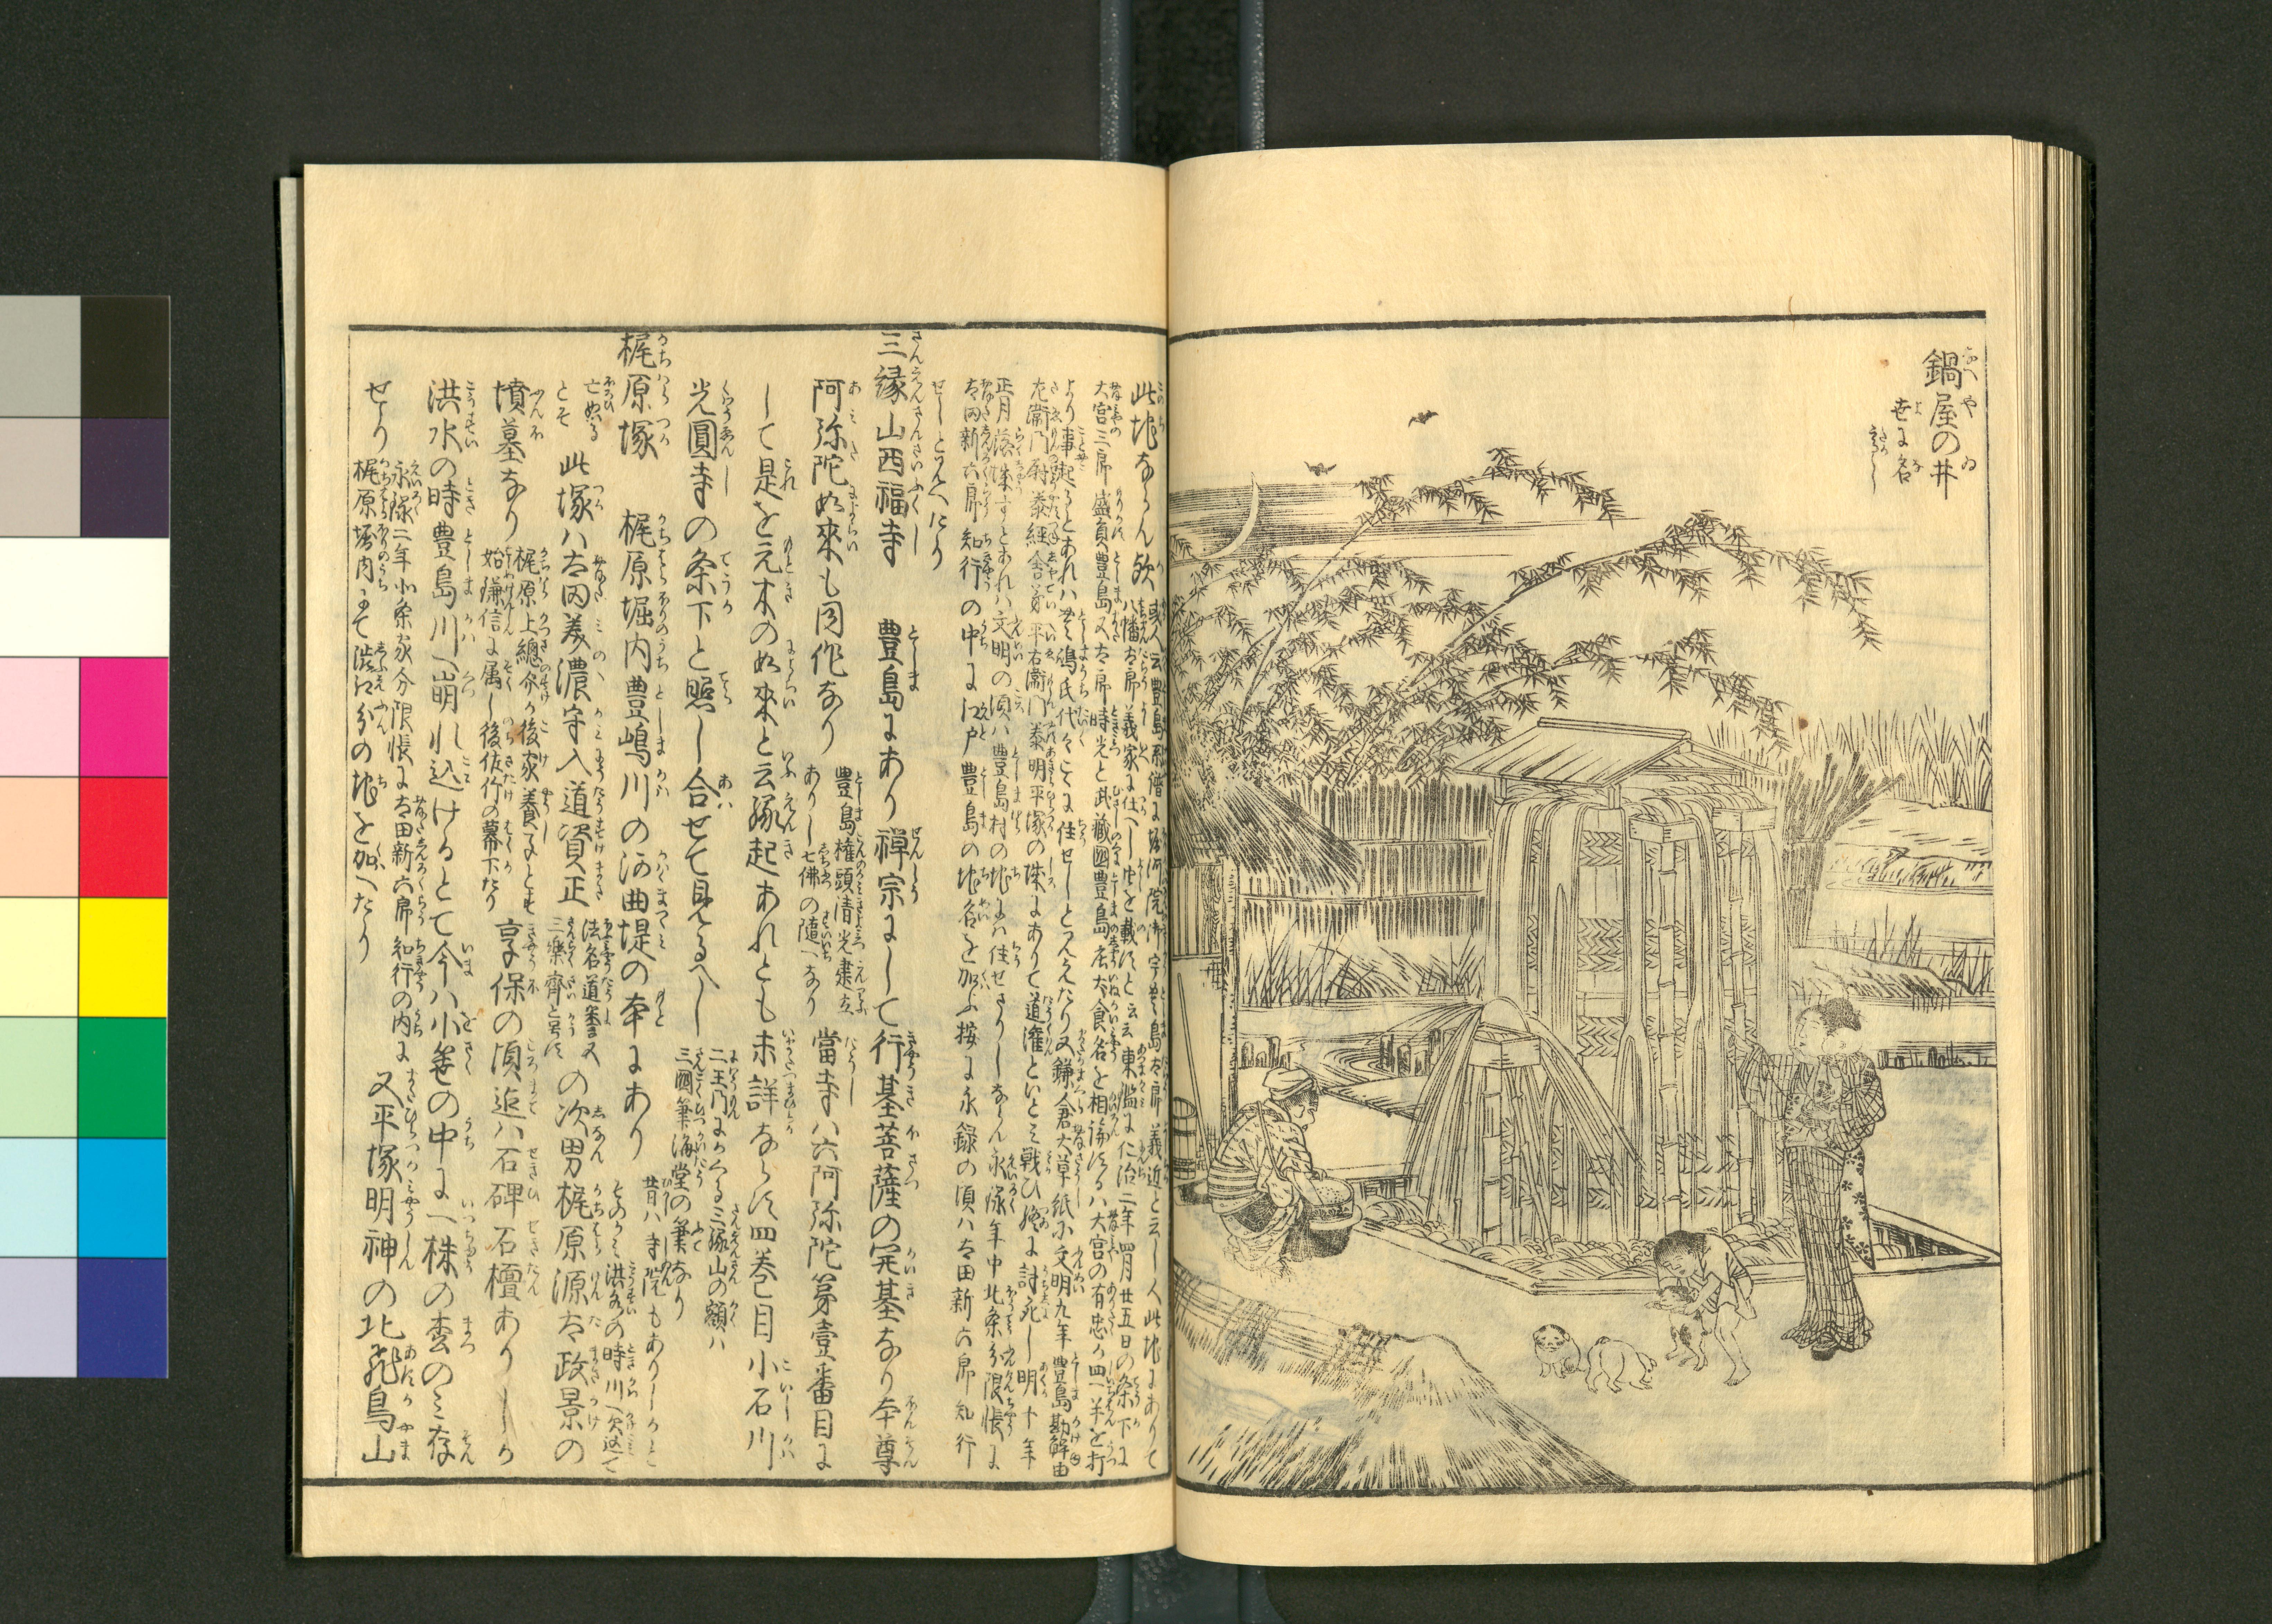 鍋屋の井
世に名
高し
此地ならん歟
或人云豊島系譜に堀河院御宇豊島太郎義近と云し人此地にありて
八幡太郎義家に仕へし由を載たりと云云東鑑に仁治二年四月廿五日の条下に
大宮三郎盛員豊島又太郎時光と武藏國豊島庄犬食名を相論するハ大宮の有忠か四一半を打
より事起るとあれハ豊嶋氏代々こゝに住せしと見えたり又鎌倉大草紙に文明九年豊島勘解由
左衛門尉泰經舎弟平右衛門泰明平塚の城にありて道灌といとミ戦ひ終に討死し明十年
正月落城すとあれハ文明の頃ハ豊島村の地にハ住せさりしならん永禄年中北条分限帳に
太田新六郎知行の中に江戸豊島の地名を加ふ按に永録の頃ハ太田新六郎知行
せしと見へたり
三縁山西福寺 豊島にあり禅宗にして行基菩薩の開基なり本尊
阿弥陀如來も同作なり
豊島権頭清光建立
ありし七佛の随一なり
當寺ハ六阿弥陀第壹番目に
して是を元木の如來と云縁起あれとも未詳ならす四巻目小石川
光圓寺の条下と照し合せて見るへし
二王門にかくる三縁山の額ハ
三國筆海堂の筆なり
梶原塚 梶原堀内豊嶋川の河曲堤の本にあり
昔ハ寺院もありしかと
そのかミ洪水の時川へ欠込て
亡ぬる
とそ
此塚ハ太田美濃守入道資正
法名道誉又
三樂齋と号す
の次男梶原源太政景の
墳墓なり
梶原上總介か後家養子とも
始謙信に属し後佐竹の幕下たり
享保の頃迄ハ石碑石檀ありしか
洪水の時豊島川へ崩れ込けるとて今ハ小巷の中に一株の杢のミ存
せり
永禄二年小条家分限帳に太田新六郎知行の内に
梶原堀内にて渋江分の地を加へたり
又平塚明神の北飛鳥山